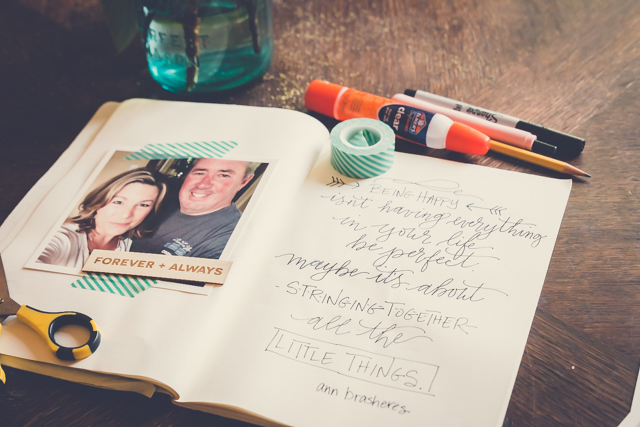 PERFECT
MASON
FOREVER + ALWAYS
Elmer's
clear
Sharpie
BEING HAPPY
isn't having everything
in your life
be perfect
maybe it's about
STRINGING TOGETHER
all the
LITTLE THINGS.
ann brasheres